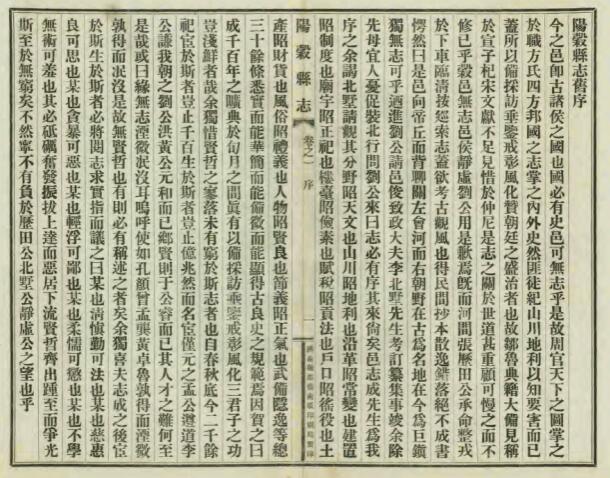 陽穀縣志舊序
今之邑卽古諸侯之國也國必有史邑可無志乎是故周官天下之圖掌之
於職方氏四方邦國之志掌之內外史然匪徒紀山川地利以知要害而已
蓋所以備採訪垂鑒戒彰風化贊朝廷之盛治者也故鄒魯典籍大備見稱
於宣子杞宋文獻不足見惜於仲尼是志之關於世道甚重顧可慢之而不
修已乎穀邑無志邑侯靜虛劉公用是歉焉旣而河間張歷田公承命整戎
於下車臨清按索志蓋欲考古觀風也得民間抄本散逸錯落絕不成書
愕然曰是邑向帝丘而背聊關左會河而右朝野在古爲名地在今爲巨鎮
獨無志可乎迺進劉公請邑俊致政大夫李北墅先生考訂纂集事竣余除
先母宜人憂促裝北行問劉公來曰志必有序其來尙矣邑志成先生爲我
序之余謁北墅請觀其分野昭天文也山川昭地利也沿革昭常變也建置
昭制度也廟宇昭正祀也樓臺昭儉素也賦稅昭貢法也戶口昭徭役也土
陽穀縣志
卷之一 序
一
產昭財貨也風俗昭禮義也人物昭賢良也節義昭正氣也武備隱逸等總
三十餘條悉實而能華簡而能備微而能顯得古良史之規範焉因賀之曰
成千百年之曠典於旬月之間眞有以備採訪垂鑒戒彰風化三君子之功
豈淺鮮者哉余獨惜賢哲之寥落未有窮於斯志者也自春秋底今二千餘
祀宦於斯者豈止千百生於斯者豈止億兆然而名宦僅元之孟公遵道李
公謙我朝之劉公洪黃公元和而已鄉賢則于公睿而已其人才之難何至
是哉或曰緣無志湮微泯沒耳嗚呼使如孔顏曾孟龔黃卓魯孰得而湮微
孰得而泯沒是故無賢哲也有則必有稱述之者矣余獨喜夫志成之後宦
於斯生於斯者必將閱志求實指而議之曰某也清愼勤可法也某也慈惠
良可思也某也貪暴可惡也某也輕浮可鄙也某也柔懦可懲也某也不學
無術可羞也其必砥礪奮發振拔上達而惡居下流賢哲齊出踵至而爭光
斯至於無窮矣不然寧不有負於歷田公北墅公靜虛公之望也乎